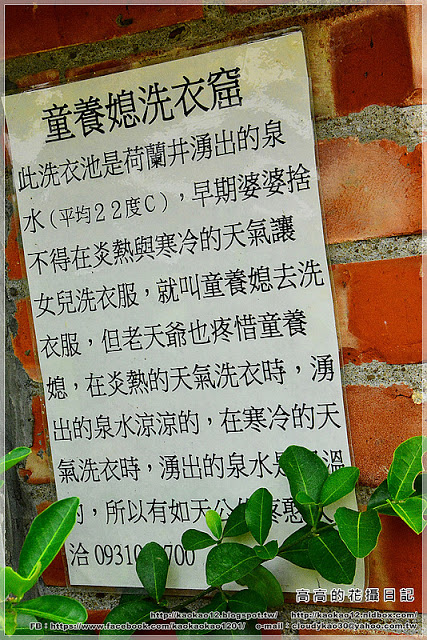 童養媳洗衣窟
此洗衣池是荷蘭井湧出的泉
水(平均22度C)，早期婆婆捨
不得在炎熱與寒冷的天氣讓
女兒洗衣服，就叫童養媳去洗
衣服，但老天爺也疼惜童養
媳，在炎熱的天氣洗衣時，湧
出的泉水涼涼的，在寒冷的天
氣洗衣時，湧出的泉水是溫
的，所以有如天公疼憨
洽 0931 700
高高的花攝日記
http://kaokao12.blogspot.tw/ http://kaokao12.nidbox.com/
FB：https://www.facebook.com/kaokao1201/ e-mail：cloudykao30@yahoo.com.tw